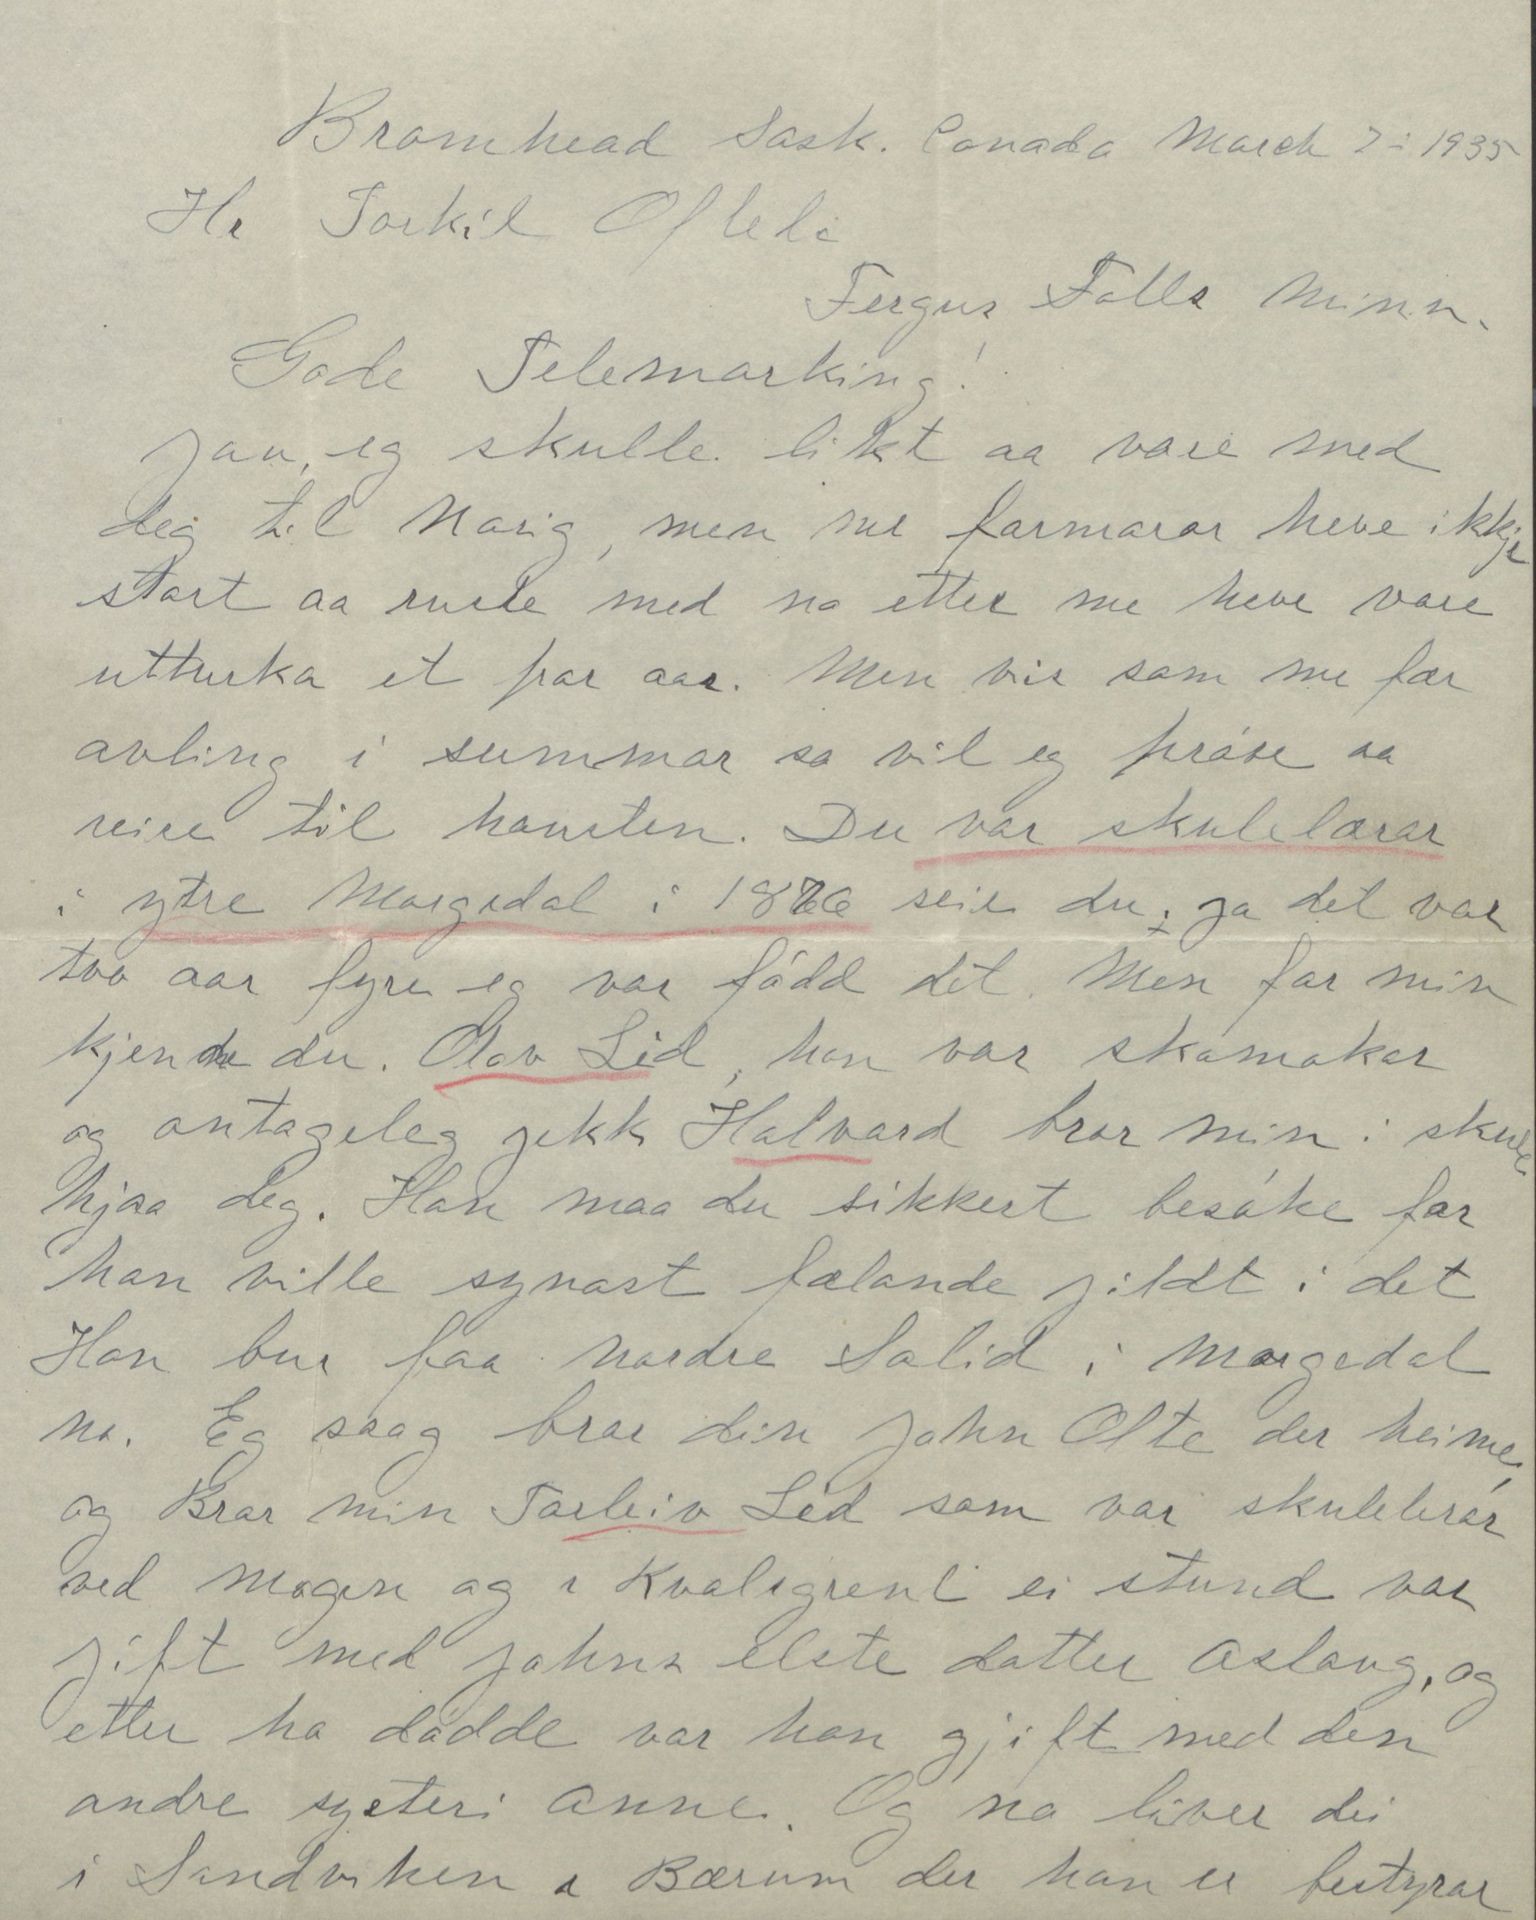 Bromhead Sask. Canada March 7 - 1935
Hr Torkil Oftelie
Fergus Falls Minn.
Gode Telemarking!
Jau, eg skulle likt aa vore med
deg til Norig, men me farmarar heve ikkje
stort aa ruste med no etter me heve vore
utturka et par aar. Men vis som me fær
avling i summar so vil eg pröve aa
reise til hausten. Du var skulelærar
i ytre Morgedal i 1876 seie du; ja det var
tvo aar fyre eg var född det. Men far min
kjende du. Olav Lid, han var skomakar
og antageleg jekk Halvard bror min i skule
hjaa deg. Han maa du sikkert besöke for
han ville synast fælande jildt i det
Han bur paa nordre Solid i Morgedal
no. Eg saag bror din John Ofte der heime,
og Bror min Torleiv Lid som var skulelerar
ved Mogen og i Kvalsgrend ei stund var
jift med Johns elste dotter Aslaug, og
etter ho dödde var han gjift med den
andre systeri Anne. Og no liver dei
i Sandviken i Bærum der han er bestyrar